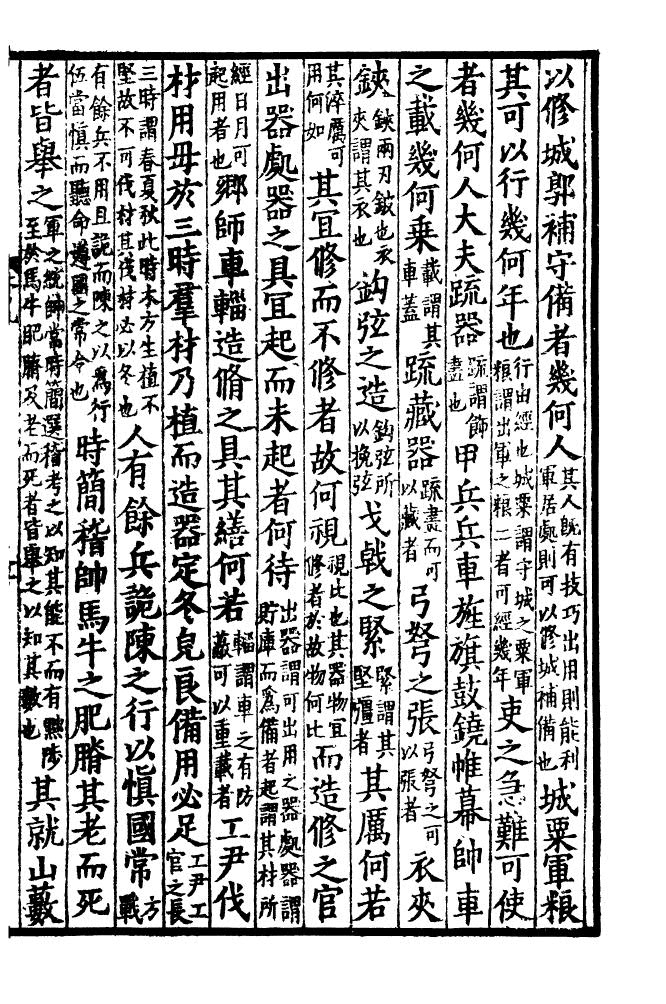 以修城郭補守備者幾何人其人既有技巧出用則能利軍居處則可以修城補備也城粟軍粮
其可以行幾何年也行由經也城粟謂守城之粟軍粮謂出軍之粮二者可經幾年吏之急難可使
者幾何人大夫疏器疏謂飾畫也甲兵兵車旌旗鼓鐃帷幕帥車
之載幾何乗載謂其車蓋疏藏器疏畫而可以藏者弓弩之張弓弩之可以張者衣夾
鋏鋏兩刃鈹也衣夾謂其衣也鈎弦之造鈎弦所以挽弦戈戟之緊緊謂其堅彊者其厲何若
其淬厲可用何如其冝修而不修者故何視視比也其器物冝修者於故物何比而造修之官
出器處器之具冝起而未起者何待出器謂可出用之器處器謂貯庫而爲備者起謂其材所
經日月可起用者也鄉師車輜造脩之具其繕何若輜謂車之有防蔽可以重載者工尹伐
材用毋於三時羣材乃植而造器定冬皃良備用必足工尹工官之長
三時謂春夏秋此時本方生植不堅故不可伐材其伐材必以冬也人有餘兵詭陳之行以慎國常方戰
有餘兵不用且詭而陳之以爲行伍當慎而聽命遵國之常令也時簡稽帥馬牛之肥膌其老而死
者皆舉之軍之統帥常時簡選稽考之以知其能不而有黜陟至於馬牛肥膌及老而死者皆舉之以知其數也其就山藪